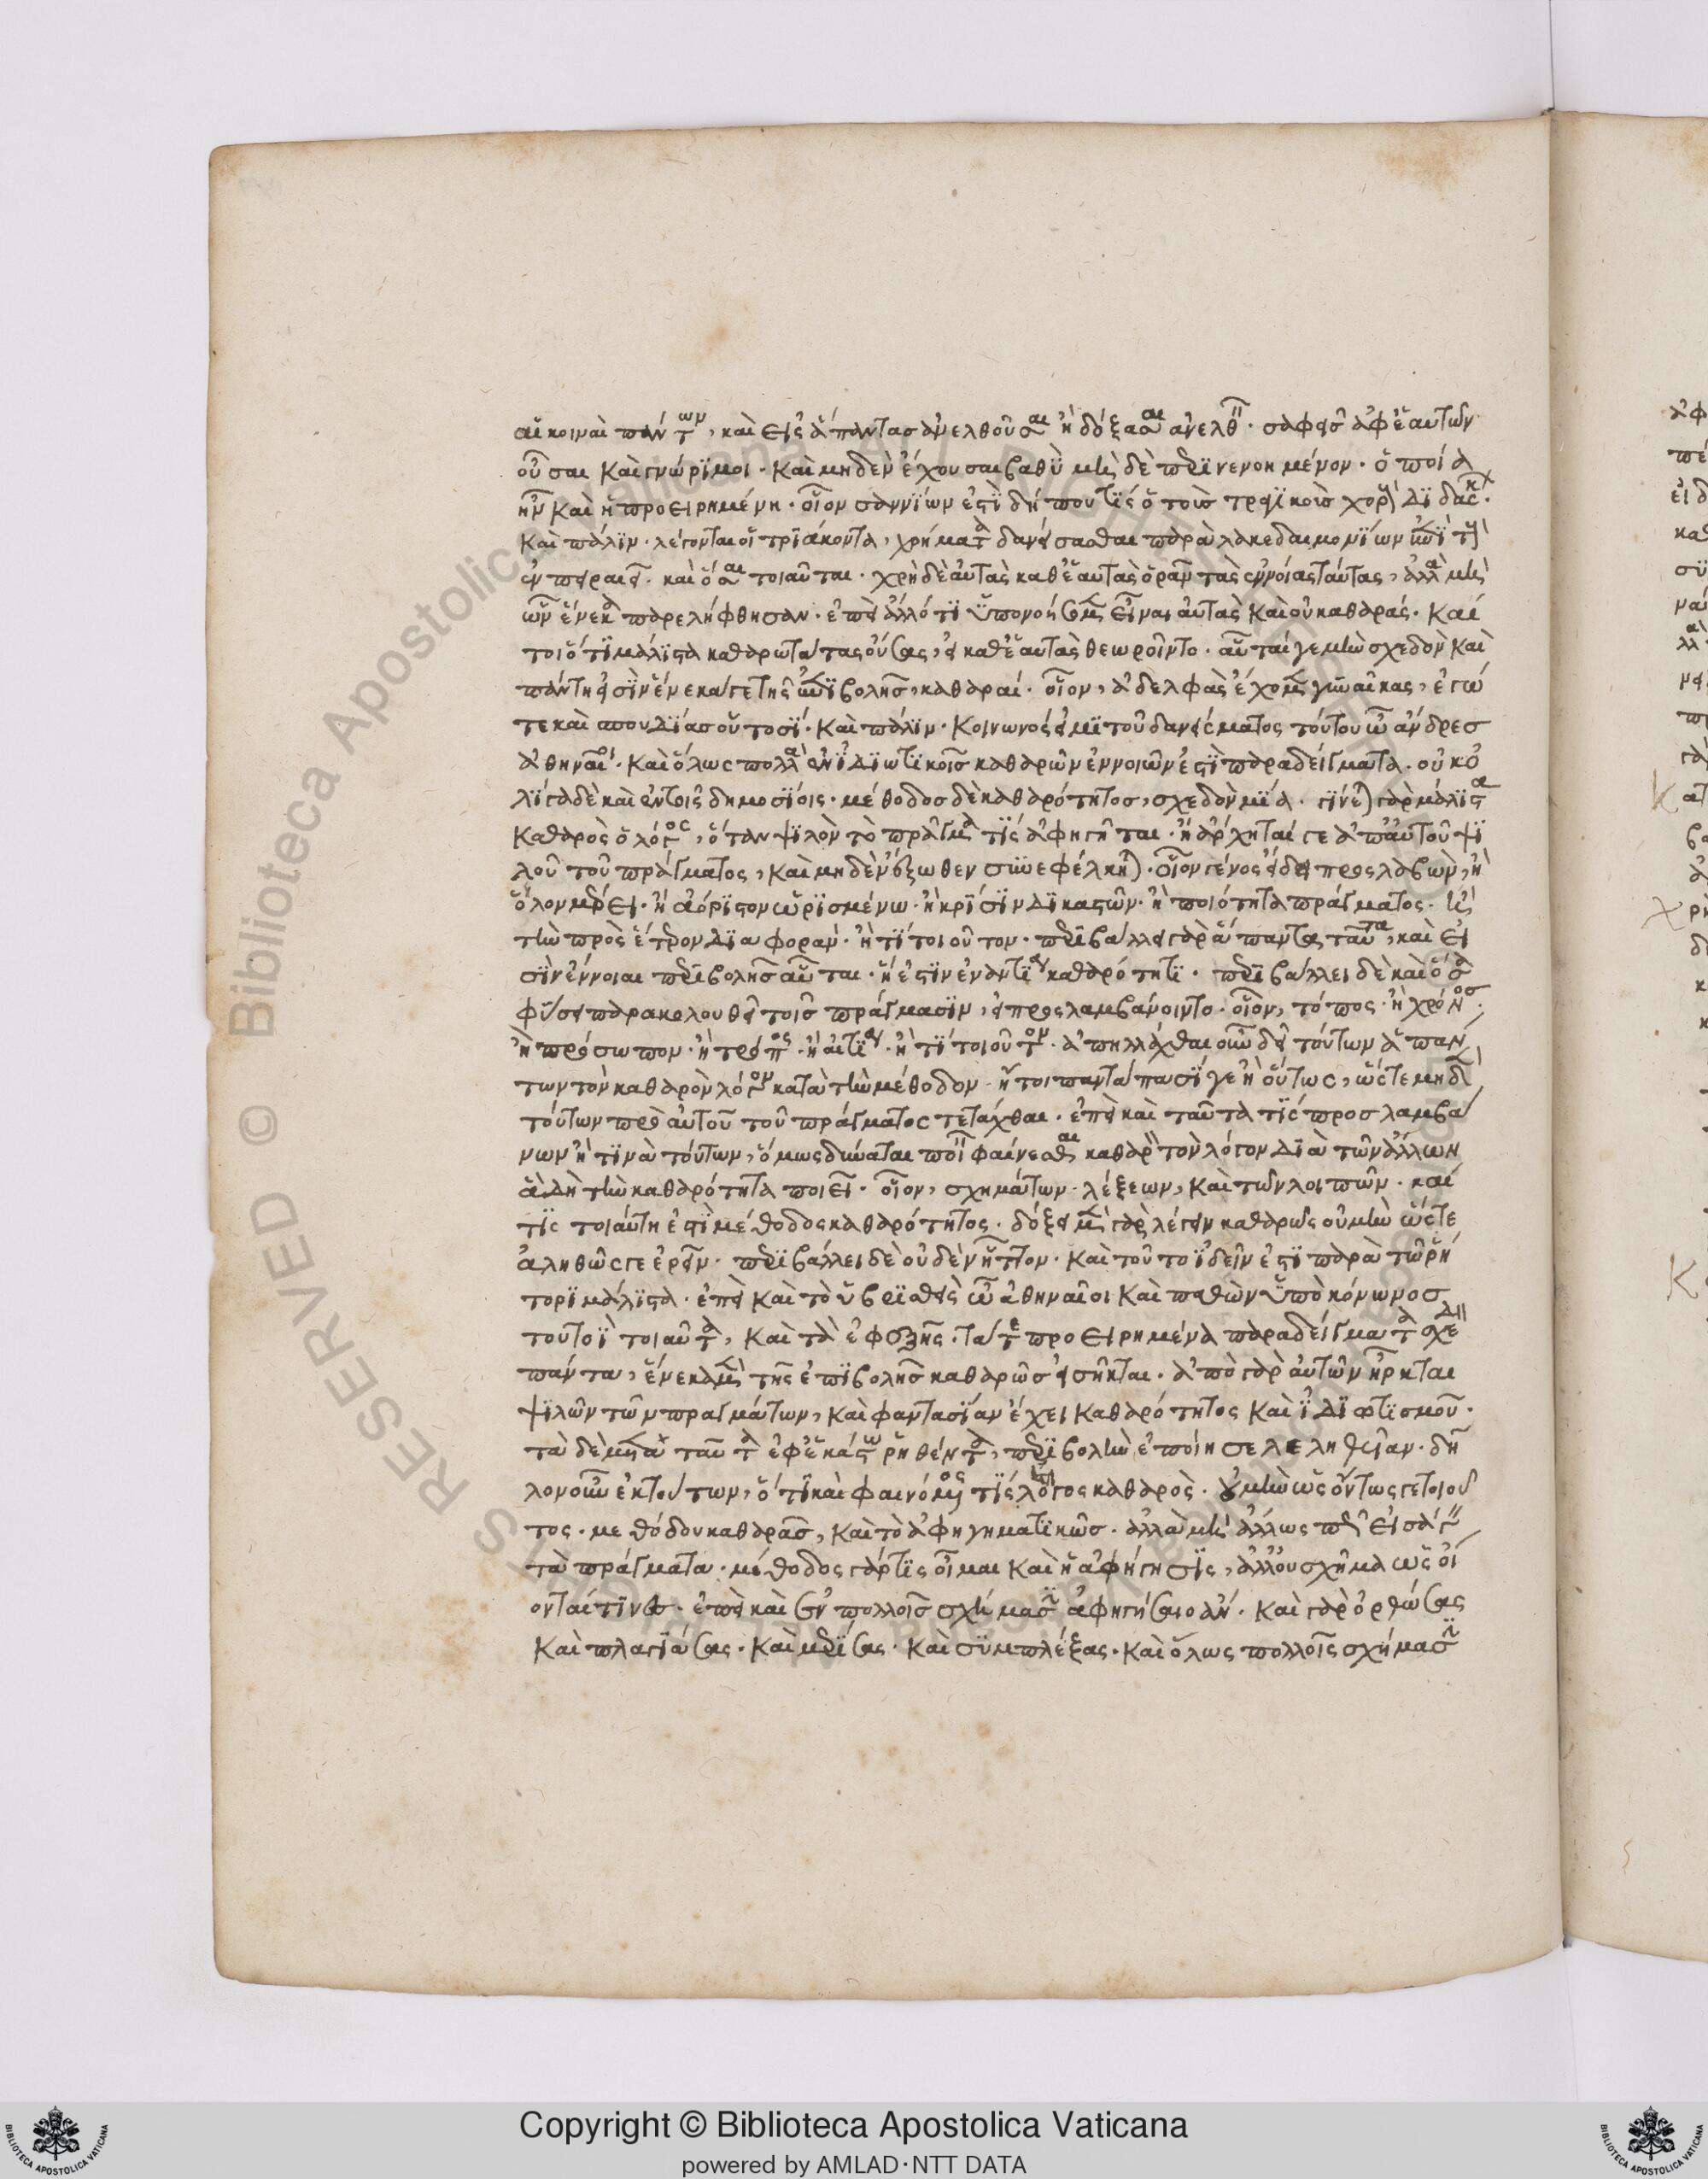 αἱ κοιναὶ πάντων, καὶ εἰς ἅπαντας ἀνελθοῦσαι ἢ δόξασαι ἀνελθεῖν. σαφεῖς ἀφ' ἑαυτῶν
οὖσαι καὶ γνώριμοι. καὶ μηδὲν ἔχουσαι βαθὺ μηδὲ περινενοημένον. ὁποία
ἦν καὶ ἡ προειρημένη. οἷον σαννίων ἐστὶ δήπου τίς ὁ τοῖς τραγικοῖς χοροὺς διδάσκων.
καὶ πάλιν. λέγονται οἱ τριάκοντα, χρήματα δανείσασθαι παρὰ λακεδαιμονίων ἐπὶ τοὺς
ἐν πειραιεῖ. καὶ ὅσαι τοιαῦται. χρὴ δὲ αὐτὰς καθ' ἑαυτὰς ὁρᾶν τὰς ἐννοίας ταύτας, ἀλλὰ μὴ
ὧν ἕνεκα παρελήφθησαν. ἐπεὶ ἄλλό τι ὑπονοήσομεν εἶναι αὐτὰς καὶ οὐ καθαράς. καί
τοι ὅτι μάλιστα καθαρωτάτας οὔσας, εἰ καθ' ἑαυτὰς θεωροῖντο. αὗταί γε μὴν σχεδὸν καὶ
πάντη εἰσὶν ἕνεκά γε τῆς ἐπιβολῆς, καθαραί. οἷον, ἀδελφὰς ἔχομεν γυναῖκας, ἐγώ
τε καὶ σπουδίας οὑτοσί. καὶ πάλιν. κοινωνός εἰμι τοῦ δανείσματος τούτου ὦ ἄνδρες
ἀθηναῖοι. καὶ ὅλως πολλὰ ἐν ἰδιωτικοῖς καθαρῶν ἐννοιῶν ἐστὶ παραδείγματα. οὐκ ὀ
λίγα δὲ καὶ ἐν τοῖς δημοσίοις. μέθοδος δὲ καθαρότητος, σχεδὸν μία. γίνεται γὰρ μάλιστα
καθαρὸς ὁ λόγος, ὅταν ψιλὸν τὸ πρᾶγμά τις ἀφηγῆται. ἢ ἄρχηταί γε ἀπ' αὐτοῦ ψι
λοῦ τοῦ πράγματος, καὶ μηδὲν ἔξωθεν συνεφέλκηται. οἷον γένος εἴδει προσλαβών, ἢ
ὅλον μέρει. ἢ ἀόριστον ὡρισμένω. ἢ κρίσιν δικαστῶν. ἢ ποιότητα πράγματος. ἢ
τὴν πρὸς ἕτερον διαφοράν. ἤ τι τοιοῦτον. περιβάλλει γὰρ ἅπαντα ταῦτα, καὶ εἰ
σὶν ἔννοιαι περιβολῆς αὗται. ἥ ἐστιν ἐναντία καθαρότητι. περιβάλλει δὲ καὶ ὅσα
φύσει παρακολουθεῖ τοῖς πράγμασιν, εἰ προσλαμβάνοιντο. οἷον, τόπος. ἢ χρόνος.
ἢ πρόσωπον. ἢ τρόπος. ἢ αἰτία. ἤ τι τοιοῦτον. ἀπηλλάχθαι οὖν δεῖ τούτων ἁπάν
των τὸν καθαρὸν λόγον κατὰ τὴν μέθοδον. ἤτοι παντάπασί γε ἢ οὕτως, ὥστε μηδὲν
τούτων πρὸ αὐτοῦ τοῦ πράγματος τετάχθαι. ἐπεὶ καὶ ταῦτά τις προσλαμβά
νων ἤ τινα τούτων, ὅμως δύναται ποιεῖν φαίνεσθαι καθαρὸν τὸν λόγον διὰ τῶν ἄλλων
ἃ δὴ τὴν καθαρότητα ποιεῖ. οἷον, σχημάτων. λέξεων, καὶ τῶν λοιπῶν. καί
τις τοιαύτη ἐστὶ μέθοδος καθαρότητος. δόξει μὲν γὰρ λέγειν καθαρῶς οὐ μὴν ὥστε
ἀληθῶς γε ἐρεῖν. περιβάλλει δὲ οὐδὲν ἧττον. καὶ τοῦτο ἰδεῖν ἐστὶ παρὰ τῷ ῥή
τορι μάλιστα. ἐπεὶ καὶ τὸ ὑβρισθεὶς ὦ ἀθηναῖοι καὶ παθὼν ὑπὸ κόνωνος
τουτοῒ τοιαῦτα, καὶ τὰ ἐφεξῆς. τά τε προειρημένα παραδείγματα σχεδὸν
πάντα, ἕνεκα μὲν τῆς ἐπιβολῆς καθαρῶς εἰσῆκται. ἀπὸ γὰρ αὐτῶν ἦρκται
ψιλῶν τῶν πραγμάτων, καὶ φαντασίαν ἔχει καθαρότητος καὶ ἰδιωτισμοῦ.
τὰ δὲ μετὰ ταῦτα ἐφ' ἑκάστω ῥηθέντα, περιβολὴν ἐποίησε λεληθυῖαν. δῆ
λον οὖν ἐκ τούτων, ὅτι καὶ φαινόμενός τις ἔστι λόγος καθαρὸς. οὐ μὴν ὡς ὄντως γε τοιοῦ
τος. μεθόδου καθαρᾶς, καὶ τὸ ἀφηγηματικῶς. ἀλλὰ μὴ ἄλλως πως εἰσάγειν
τὰ πράγματα. μέθοδος γάρ τις οἶμαι καὶ ἡ ἀφήγησις, ἀλλ' οὐ σχῆμα ὡς οἴ
ονταί τινες. ἐπεὶ καὶ ἐν πολλοῖς σχήμασιν ἀφηγήσαιο ἄν. καὶ γὰρ ὀρθώσας
καὶ πλαγιάσας. καὶ μερίσας. καὶ συμπλέξας. καὶ ὅλως πολλοῖς σχήμασιν
Copyright © Biblioteca Apostolica Vaticana
powered by AMLAD·NTT DATA